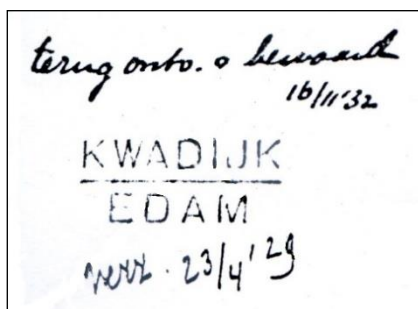 terug ontv. o bewaard
16/11'32
KWADIJK
EDAM
verz. 23/4'29